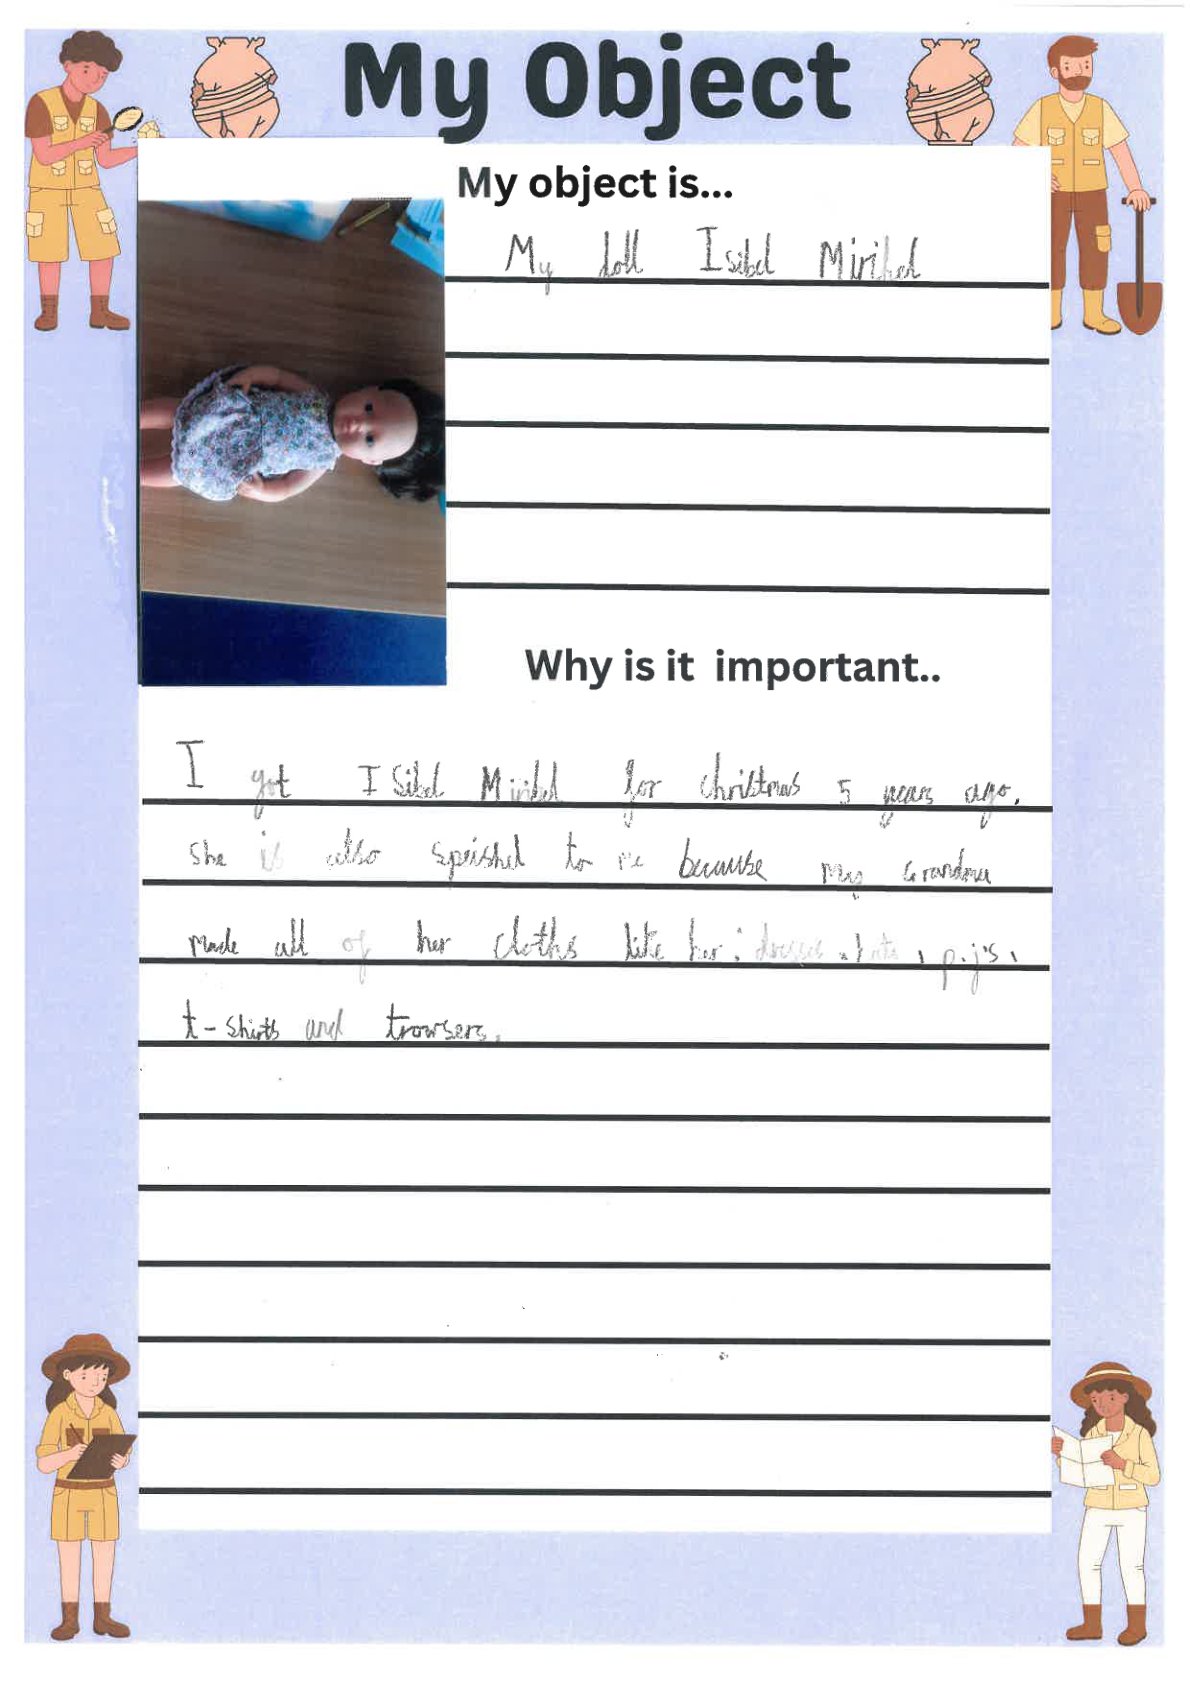 My Object
My object is...
My doll Isibel Miribel
Why is it important..
I got ISibel Miribel for christmas 5 years ago.
She is also speishel to me because my Grandma
made all of her cloths like her: dresses, hats, p.j's,
t-shirts and trowsers.